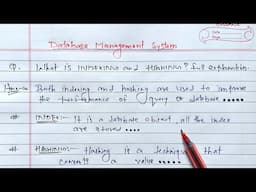 Database Management System
Q. What is INDEXING and HASHING? full explanation.
Both indexing and hashing are used to improve
the performance of query or database .....
# INDEX:- It is a database object, all the index
are stored ....
# HASHING:- Hashing is a technique that
converts a value .....